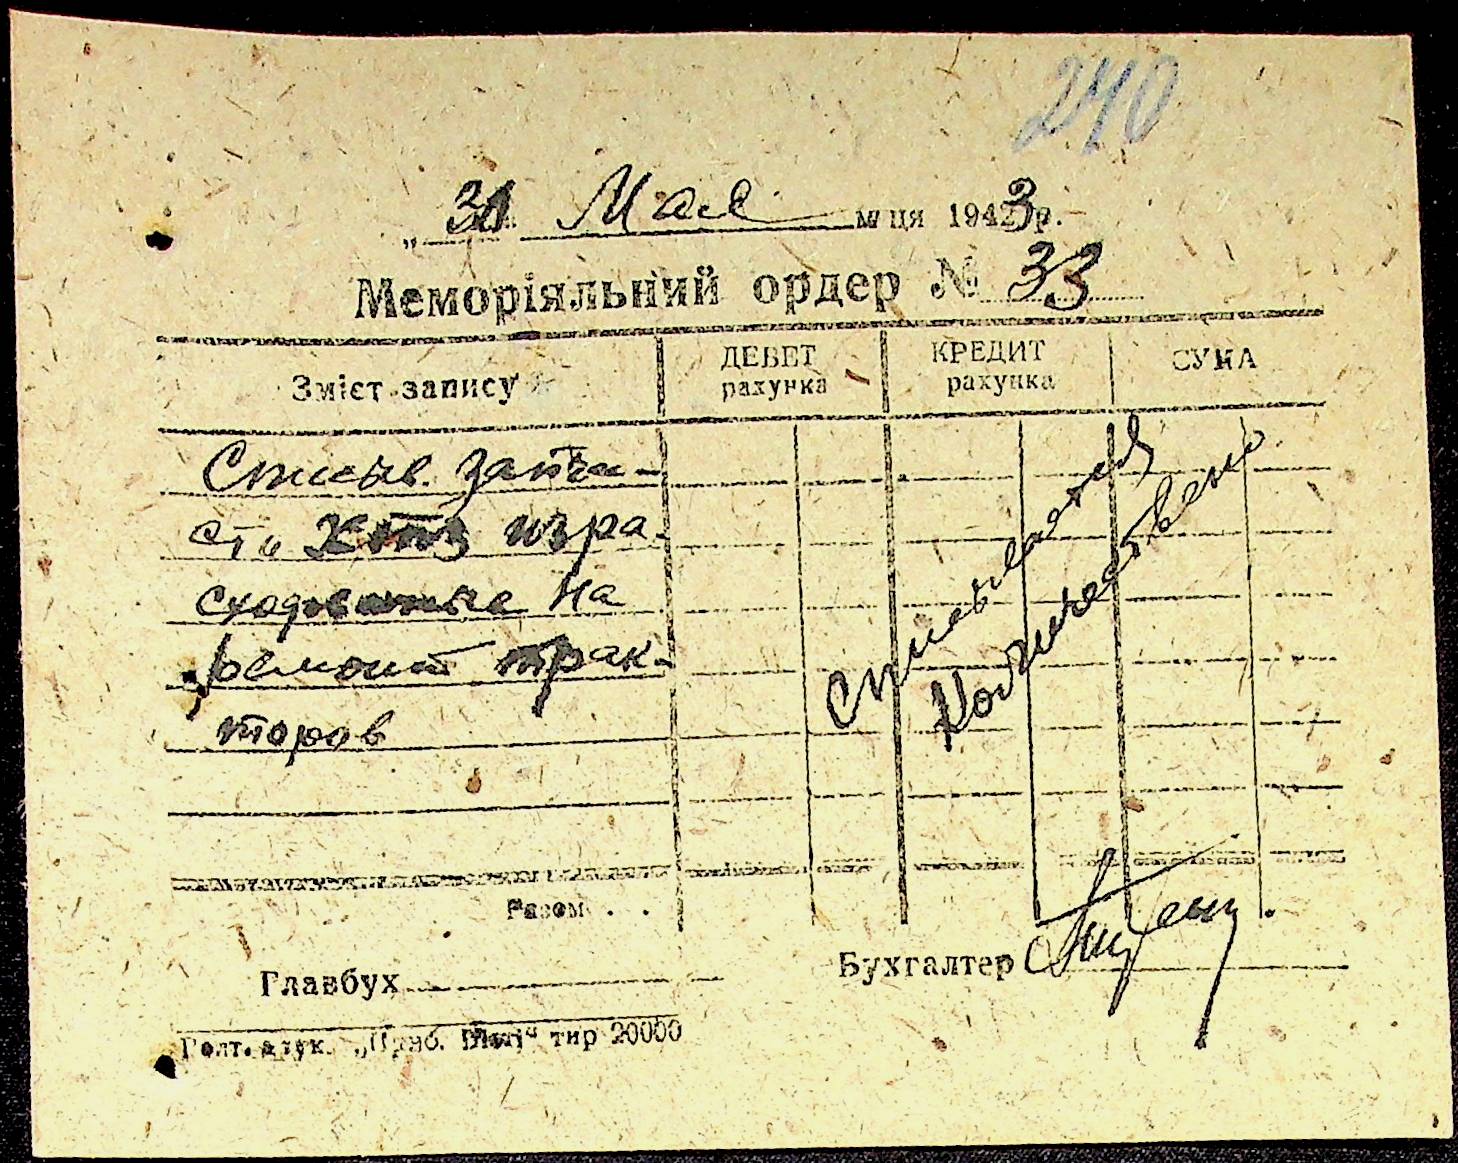 240
„31" Мая м-ця 1943 р.
Меморіяльний ордер № 33
Зміст запису
ДЕБЕТ рахунка
КРЕДИТ рахунка
СУМА
Списыв. запча-
сти ХТЗ изра-
сходованые на
ремонт трак-
торов
Списывается
Количественно
Разом . .
Главбух
Бухгалтер
Голт. друк. „Приб. Вісті“ тир 20000